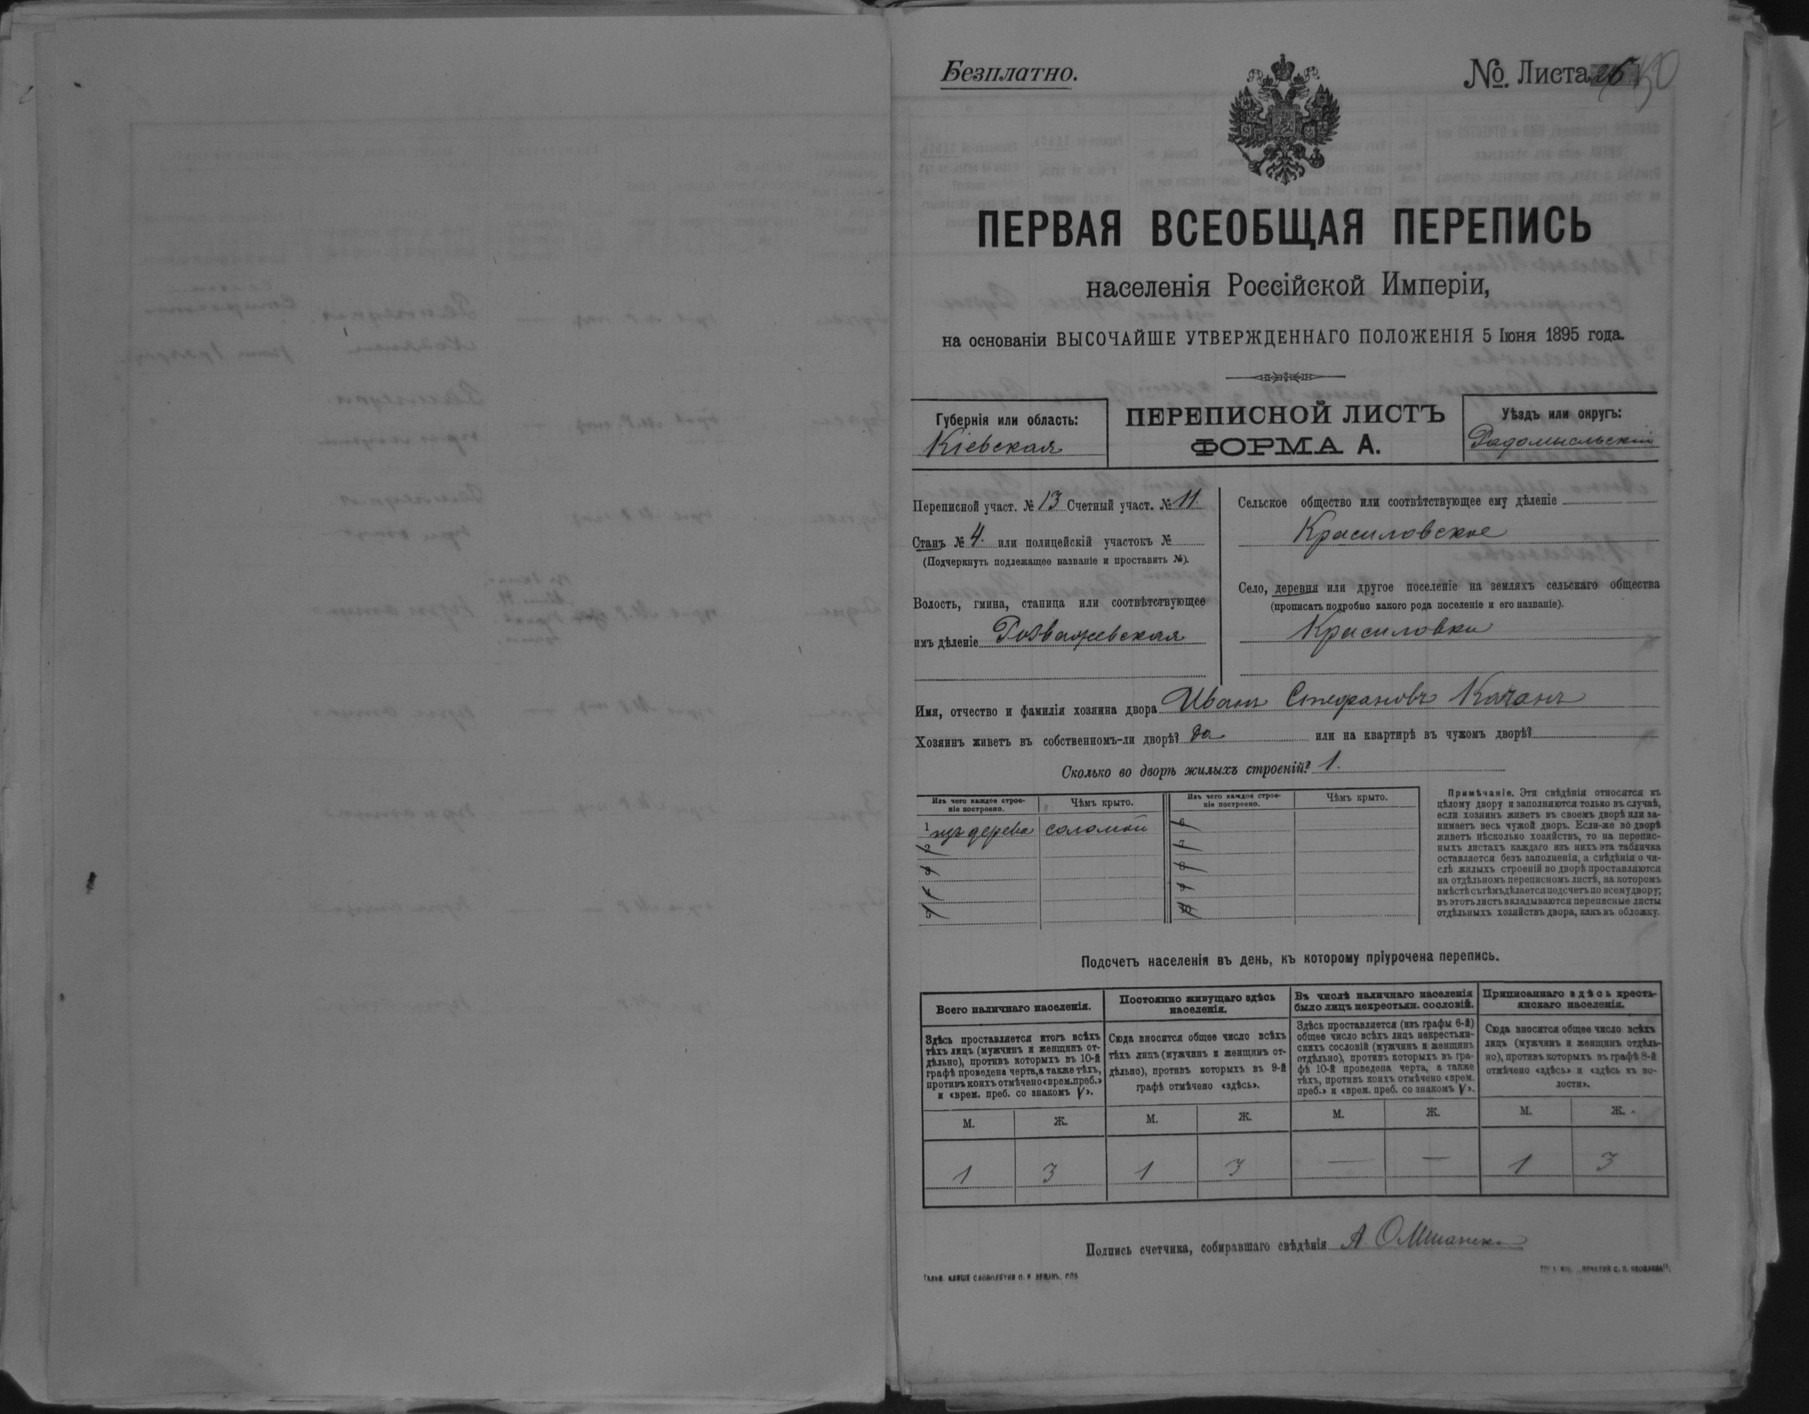 Безплатно.
№. Листа 26 150
ПЕРВАЯ ВСЕОБЩАЯ ПЕРЕПИСЬ
населенія Россійской Имперіи,
на основаніи ВЫСОЧАЙШЕ УТВЕРЖДЕННАГО ПОЛОЖЕНІЯ 5 Іюня 1895 года.
Губернія или область:
Кіевская
ПЕРЕПИСНОЙ ЛИСТЪ
ФОРМА А.
Уѣздъ или округъ:
Радомысльскій
Переписной участ. № 13 Счетный участ. № 11.
Станъ № 4. или полицейскій участокъ №
(Подчеркнуть подлежащее названіе и проставить №).
Волость, гмина, станица или соотвѣтствующее
имъ дѣленіе Розважевская
Сельское общество или соотвѣтствующее ему дѣленіе
Красиловское
Село, деревня или другое поселеніе на земляхъ сельскаго общества
(прописать подробно какого рода поселеніе и его названіе).
Красиловка
Имя, отчество и фамилія хозяина двора Иванъ Стефановъ Качанъ
Хозяинъ живетъ въ собственномъ-ли дворѣ? да или на квартирѣ въ чужомъ дворѣ?
Сколько во дворѣ жилыхъ строеній? 1.
Изъ чего каждое строе-
ніе построено.
Чѣмъ крыто.
Изъ чего каждое строе-
ніе построено.
Чѣмъ крыто.
1 изъ дерева соломой 6
2 7
3 8
4 9
5 10
Примѣчаніе. Эти свѣдѣнія относятся къ
цѣлому двору и заполняются только въ случаѣ,
если хозяинъ живетъ въ своемъ дворѣ или за-
нимаетъ весь чужой дворъ. Если-же во дворѣ
живетъ нѣсколько хозяйствъ, то на перепис-
ныхъ листахъ каждаго изъ нихъ эта табличка
оставляется безъ заполненія, а свѣдѣнія о чи-
слѣ жилыхъ строеній во дворѣ проставляются
на отдѣльномъ переписномъ листѣ, на которомъ
вмѣстѣ съ тѣмъ дѣлается подсчетъ по всему двору;
въ этотъ листъ вкладываются переписные листы
отдѣльныхъ хозяйствъ двора, какъ въ обложку.
Подсчетъ населенія въ день, къ которому пріурочена перепись.
Всего наличнаго населенія.
Здѣсь проставляется итогъ всѣхъ
тѣхъ лицъ (мужчинъ и женщинъ от-
дѣльно), противъ которыхъ въ 10-й
графѣ проведена черта, а также тѣхъ,
противъ коихъ отмѣчено «врем. преб.»
и «врем. преб. со знакомъ V».
Постоянно живущаго здѣсь
населенія.
Сюда вносится общее число всѣхъ
тѣхъ лицъ (мужчинъ и женщинъ от-
дѣльно), противъ которыхъ въ 9-й
графѣ отмѣчено «здѣсь».
Въ числѣ наличнаго населенія
было лицъ некрестьян. сословій.
Здѣсь проставляется (изъ графы 6-й)
общее число всѣхъ лицъ некрестьян-
скихъ сословій (мужчинъ и женщинъ
отдѣльно), противъ которыхъ въ гра-
фѣ 10-й проведена черта, а также
тѣхъ, противъ коихъ отмѣчено «врем.
преб.» и «врем. преб. со знакомъ V».
Приписаннаго здѣсь кресть-
янскаго населенія.
Сюда вносится общее число всѣхъ
лицъ (мужчинъ и женщинъ отдѣль-
но), противъ которыхъ въ графѣ 8-й
отмѣчено «здѣсь» и «здѣсь къ во-
лости».
М. Ж. М. Ж. М. Ж. М. Ж.
1 3 1 3 — — 1 3
Подпись счетчика, собиравшаго свѣдѣнія А.